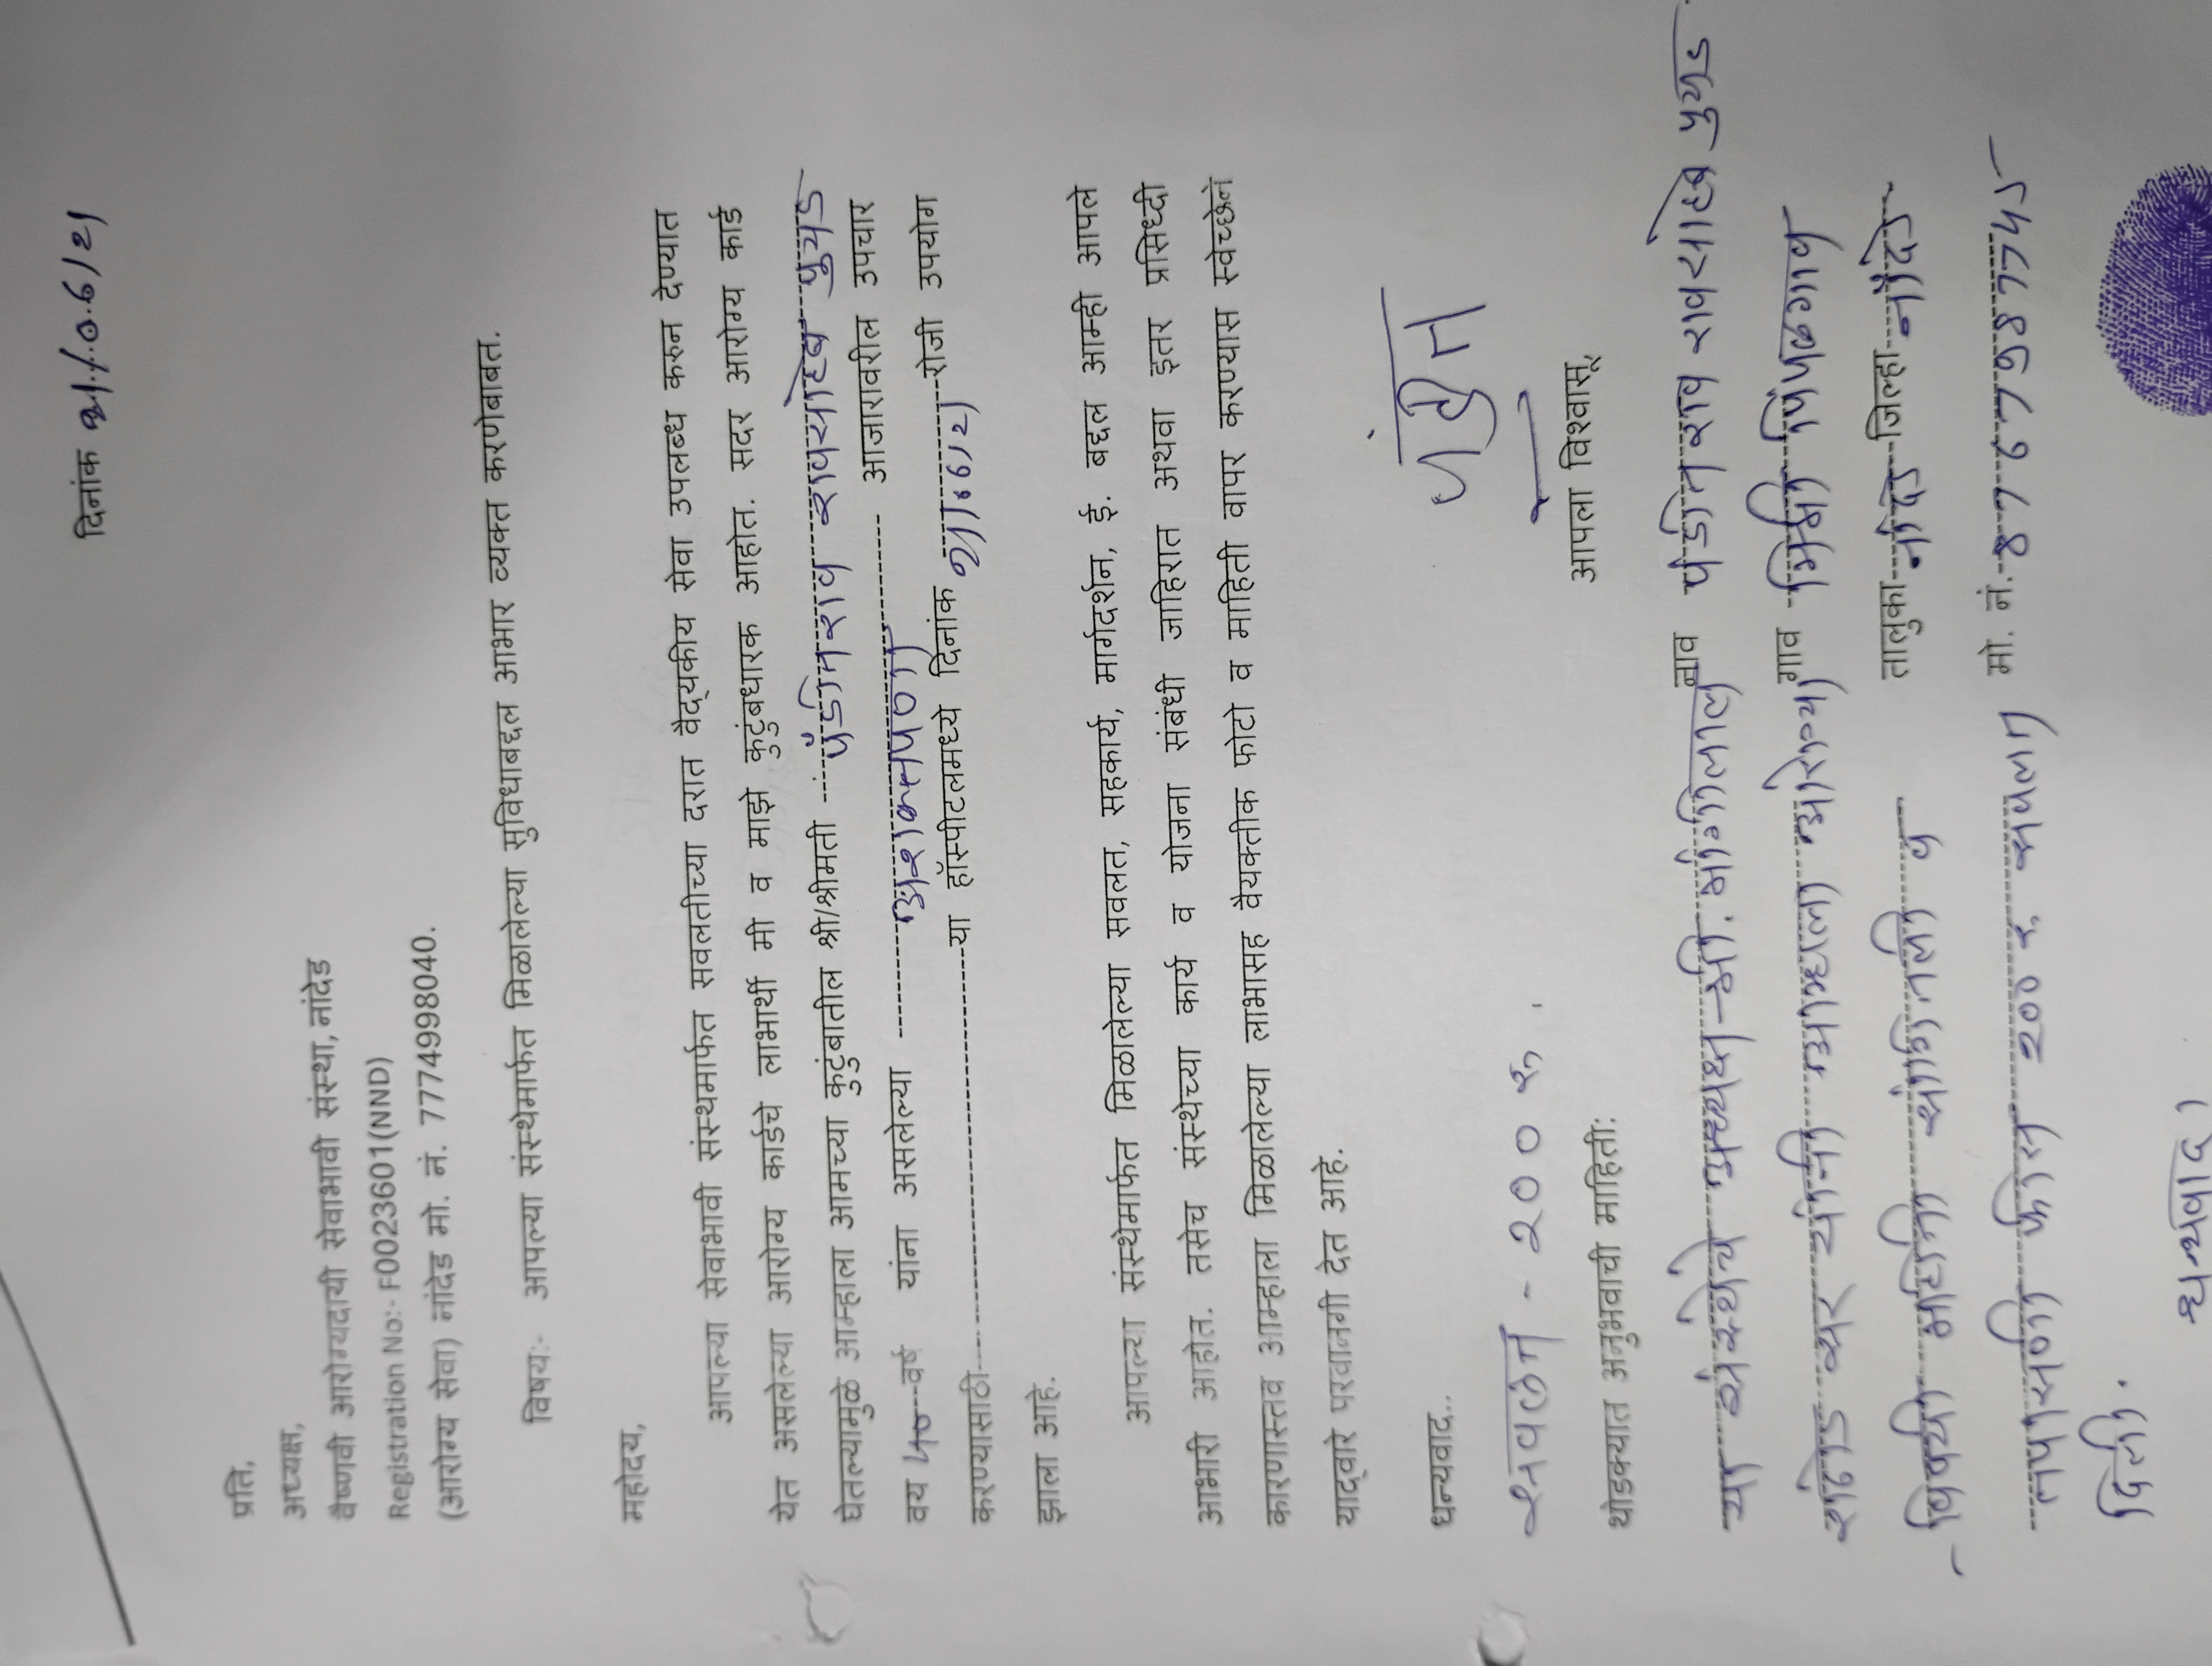 दिनांक 21/06/21
प्रति,
अध्यक्ष,
वैष्णवी आरोग्यदायी सेवाभावी संस्था, नांदेड
Registration No:- F0023601(NND)
(आरोग्य सेवा) नांदेड मो. नं. 7774998040.
विषय:- आपल्या संस्थेमार्फत मिळालेल्या सुविधाबद्दल आभार व्यक्त करणेबाबत.
महोदय,
आपल्या सेवाभावी संस्थमार्फत सवलतीच्या दरात वैद्यकीय सेवा उपलब्ध करुन देण्यात
येत असलेल्या आरोग्य कार्डचे लाभार्थी मी व माझे कुटुंबधारक आहोत. सदर आरोग्य कार्ड
घेतल्यामुळे आम्हाला आमच्या कुटुंबातील श्री/श्रीमती पंडीतराव रावसाहेब पुयड
वय 50 वर्ष यांना असलेल्या अशक्तपणा आजारावरील उपचार
करण्यासाठी या हॉस्पीटलमध्ये दिनांक 21/06/21 रोजी उपयोग
झाला आहे.
आपल्या संस्थेमार्फत मिळालेल्या सवलत, सहकार्य, मार्गदर्शन, ई. बद्दल आम्ही आपले
आभारी आहोत. तसेच संस्थेच्या कार्य व योजना संबंधी जाहिरात अथवा इतर प्रसिध्दी
कारणास्तव आम्हाला मिळालेल्या लाभासह वैयक्तीक फोटो व माहिती वापर करण्यास स्वेच्छेने
याद्वारे परवानगी देत आहे.
धन्यवाद..
सवलत - 200 रु.
पंडीत
आपला विश्वासू,
थोडक्यात अनुभवाची माहिती:
या संस्थेचे अध्यक्ष श्री. सांगीतलाल
नाव पंडीतराव रावसाहेब पुयड
राठोड सर यांनी आम्हाला आरोग्या
गाव पिंपळगाव
विषयी माहीती सांगीतली व
तालुका नांदेड जिल्हा नांदेड
तपासणी फीस 200 रु. सवलत
मो. नं. 8767987745
दिली.
धन्यवाद